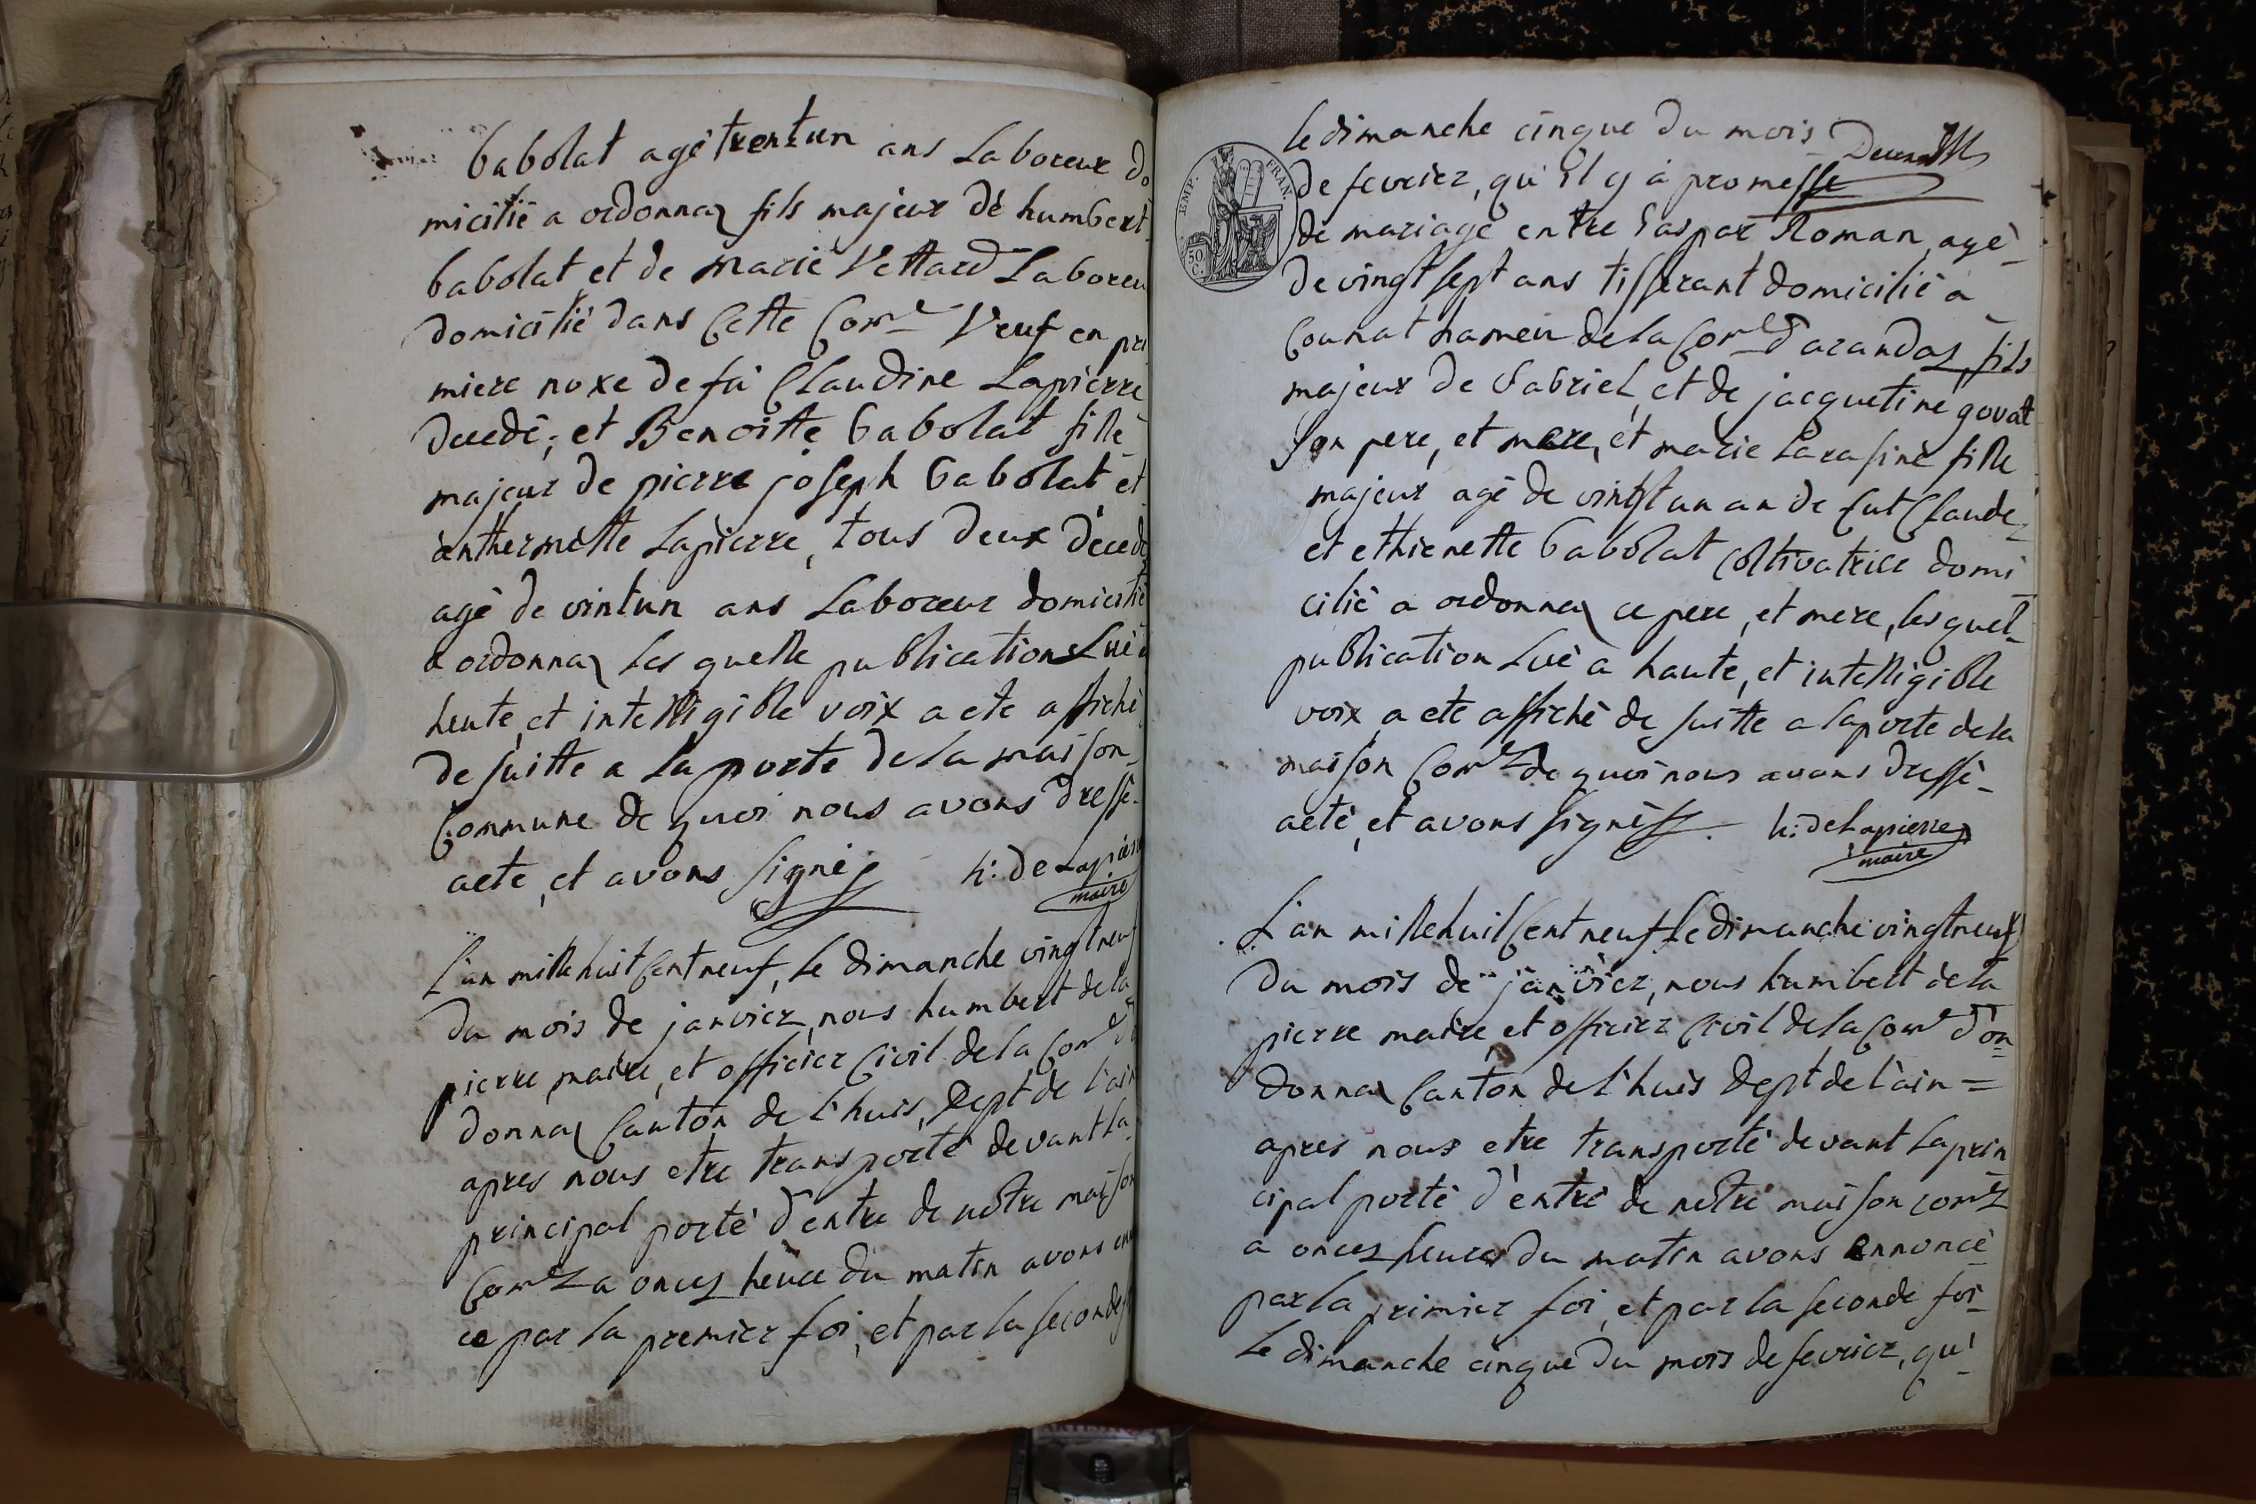 babolat agé trentun ans Laboreur do
micitié a ordonnaz fils majeur dé humbert
babolat et de marie Vettard Laboreu
domicilié dans Cette Com.e Veuf en pre
miere noxe de fu Claudine Lapierre
decedé; et Benoitte babolat fille
majeur de pierre joseph babolat et
anthermette Lapierre, tous deux décedé
agé de vintun ans Laboreur domicilié
a ordonnaz les quelle publication Lué a
heute, et intelligible voix a ete affiché
de suitte a la porte de la maison
Commune de quoi nous avons dressé
acte, et avons signé h: de Lapierre
maire
L'an mille huit Cent neuf, le dimanche vingt neuf
du mois de janvier, nous humbert de la
pierre maire, et officier Civil de la Com.e d'o
donnaz Canton de l'huis, Dept de l'ain
apres nous etre transporté devant la
principal porté d'entre de notre maison
Com.e a onces heure du matin avons
ce par la premier foi, et par la seconde
le dimanche cinque du mois
de fevrier, qu'il y a promesse
EMP. FRAN.
50 C.
de mariage entre Gaspar Roman agé
de vingt sept ans tisserant domicilié a
Counat hameu de la Com.e d'arandas, fils
majeur de Gabriel, et de jacquetine govat
son pere, et mere, et marie Larasiné fille
majeur agé de vintst un an de fut Claude
et ethienette babolat Coltivatrice domi
cilié a ordonnaz ce pere, et mere, lesquel
publication Lué a haute, et intelligible
voix a ete affiché de suitte a la porte de la
maison Com.e de quoi nous avons dressé
acté, et avons signé h: de Lapierre
maire
L'an mille huit Cent neuf Le dimanche vingt neuf
du mois de janvier, nous humbert de la
pierre maire, et officier Civil de la Com.e d'on
donnaz Canton de l'huis Dept de l'ain =
apres nous etre transporté devant la prin
cipal porté d'entré de notré maison com.e
a onces heures du matin avons annoncé
par la primier foi, et par la seconde foi
le dimanche cinque du mois de fevrier, qu'i